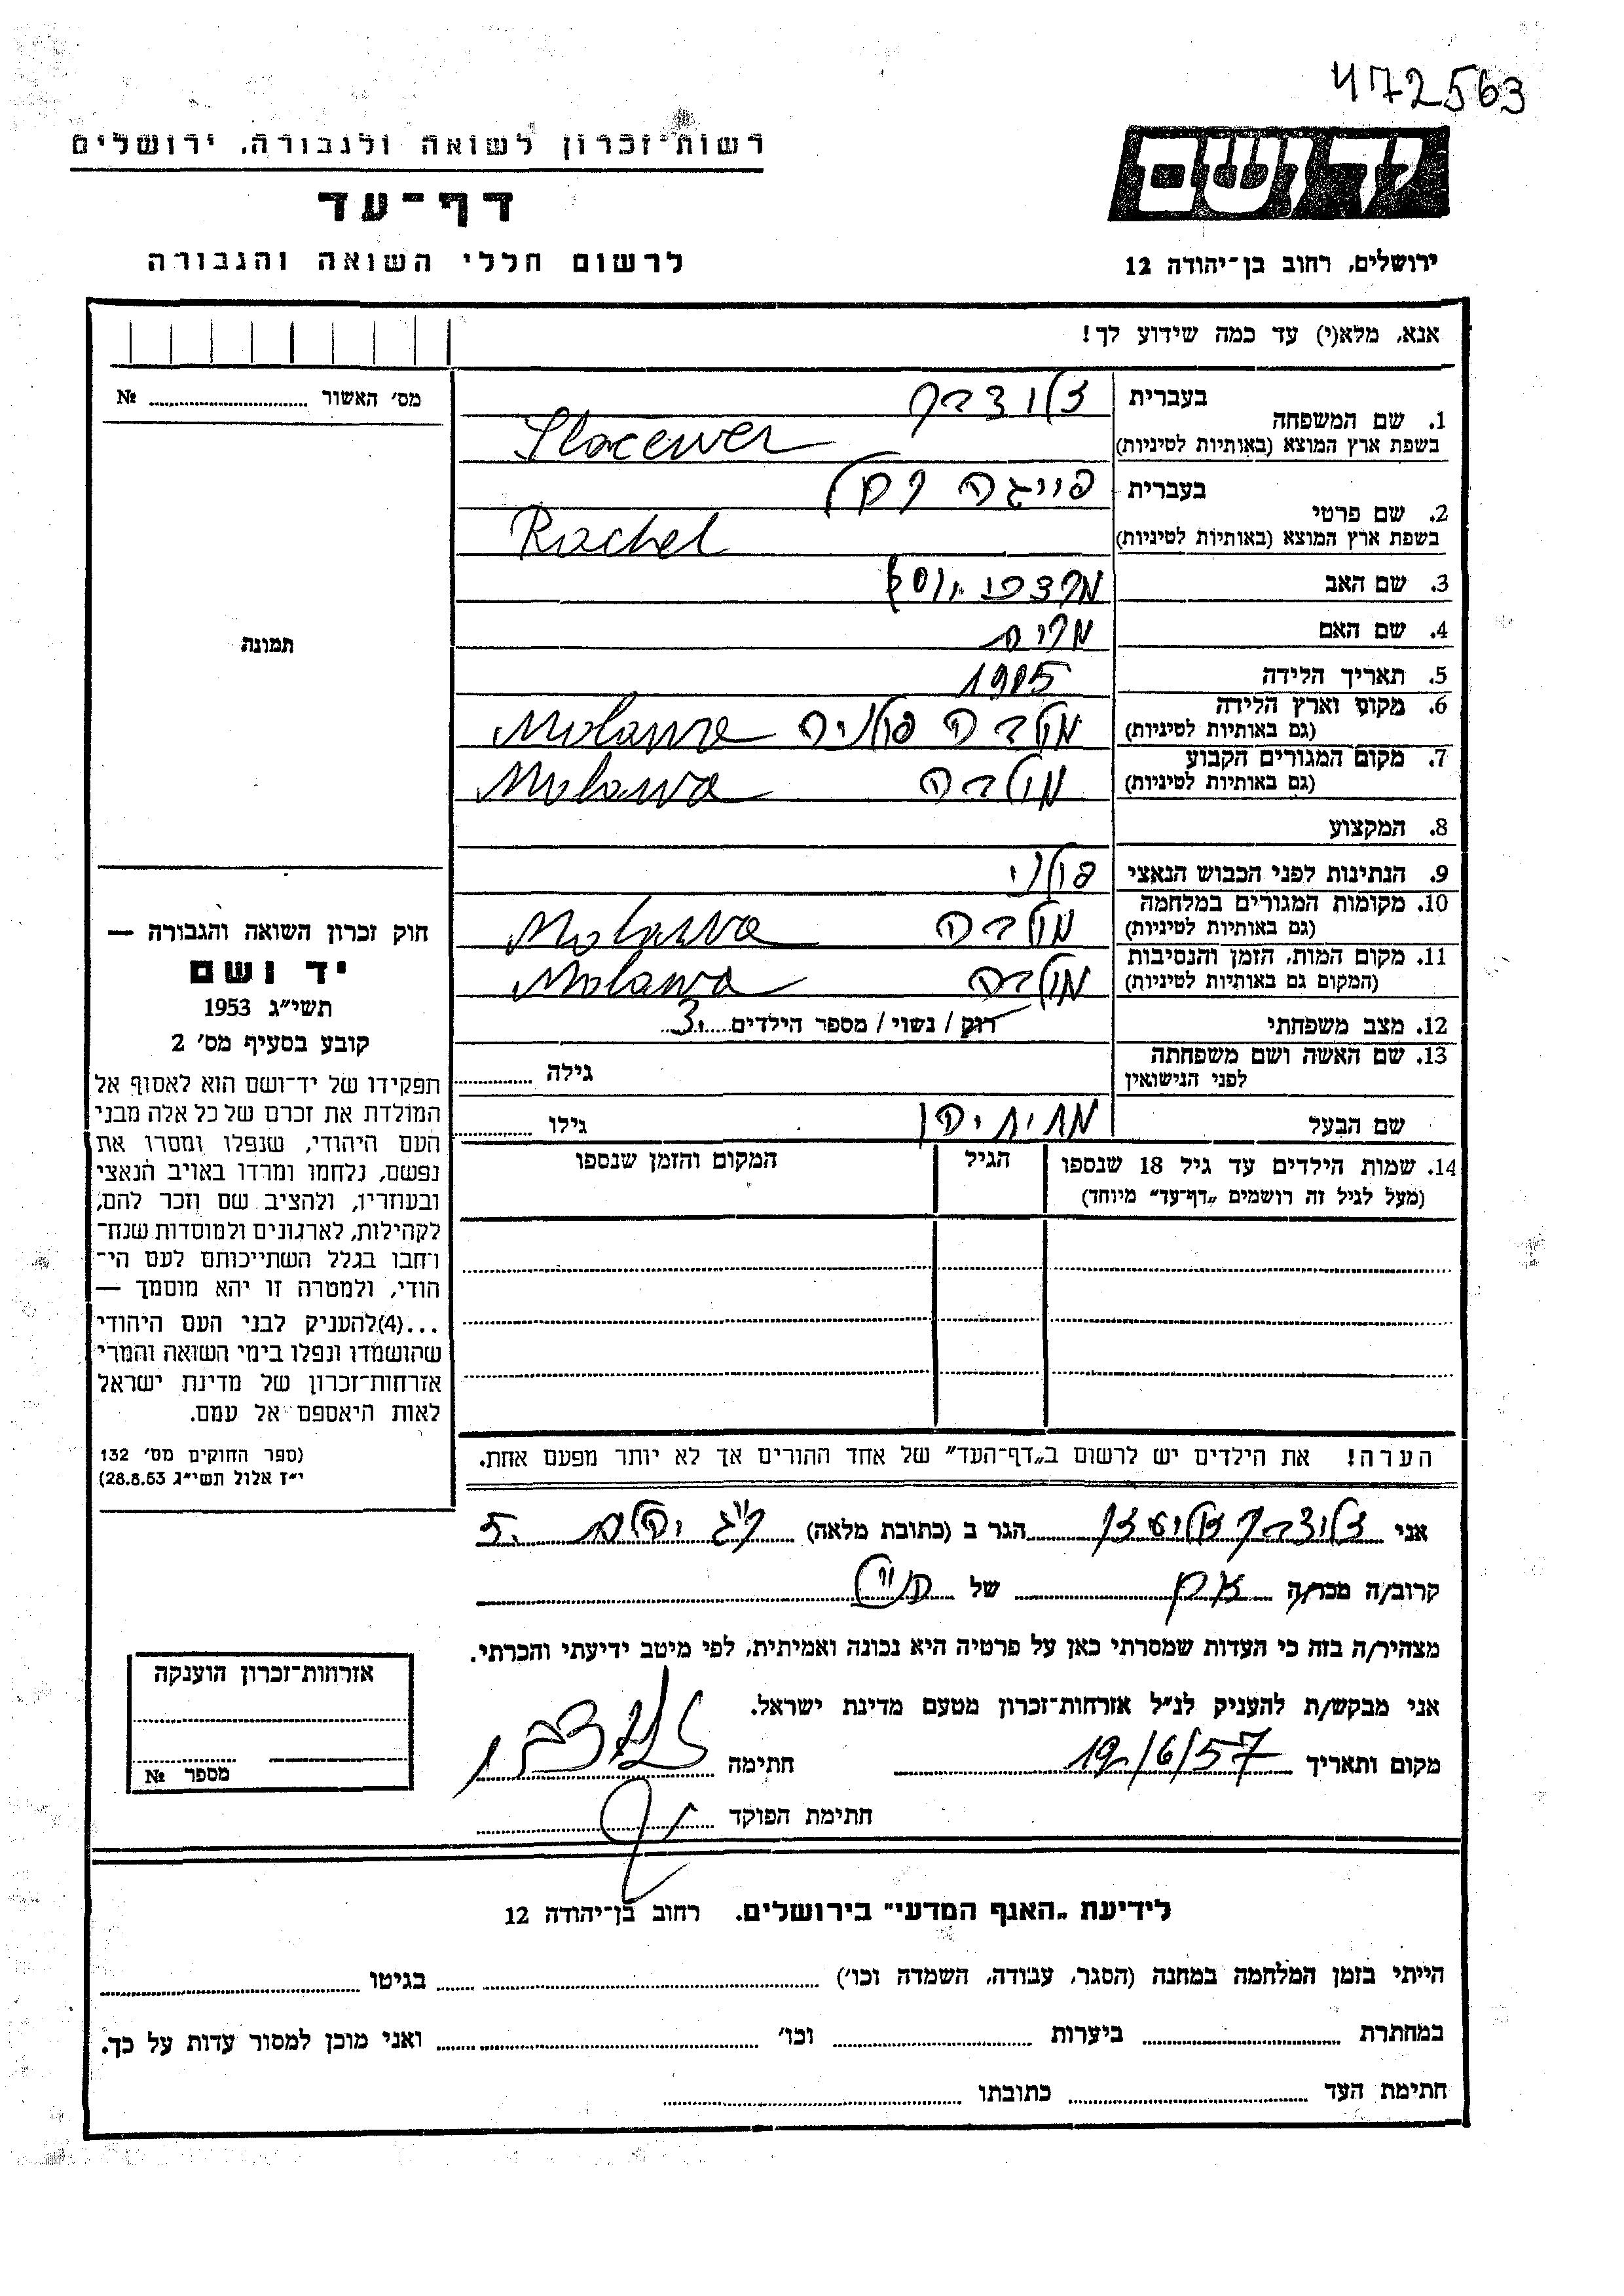 472563
יד ושם
ירושלים, רחוב בן־יהודה 12
רשות־זכרון לשואה ולגבורה, ירושלים
דף־עד
לרשום חללי השואה והגבורה
אנא, מלא(י) עד כמה שידוע לך!
מס׳ האשור № 
תמונה
1. שם המשפחה
בעברית
בשפת ארץ המוצא (באותיות לטיניות)
2. שם פרטי
בעברית פייגה רחל
בשפת ארץ המוצא (באותיות לטיניות) Rachel
3. שם האב מרדכי יוסף
4. שם האם מרים
5. תאריך הלידה 1905
6. מקום וארץ הלידה
(גם באותיות לטיניות) מלבה פולניה
7. מקום המגורים הקבוע
(גם באותיות לטיניות) Molawa
8. המקצוע
9. הנתינות לפני הכבוש הנאצי פולני
10. מקומות המגורים במלחמה
(גם באותיות לטיניות) Molawa
11. מקום המות, הזמן והנסיבות
(המקום גם באותיות לטיניות) Molawa
12. מצב משפחתי רוק / נשוי / מספר הילדים 3
13. שם האשה ושם משפחתה
לפני הנישואין גילה
שם הבעל מתיתיהו גילו
14. שמות הילדים עד גיל 18 שנספו
(מעל לגיל זה רושמים „דף־עד״ מיוחד)
הגיל
המקום והזמן שנספו
הערה! את הילדים יש לרשום ב„דף־העד״ של אחד ההורים אך לא יותר מפעם אחת.
חוק זכרון השואה והגבורה —
יד ושם
תשי״ג 1953
קובע בסעיף מס׳ 2
תפקידו של יד־ושם הוא לאסוף אל
המולדת את זכרם של כל אלה מבני
העם היהודי, שנפלו ומסרו את
נפשם, נלחמו ומרדו באויב הנאצי
ובעוזריו, ולהציב שם וזכר להם,
לקהילות, לארגונים ולמוסדות שנח־
רחבו בגלל השתייכותם לעם הי־
הודי, ולמטרה זו יהא מוסמך —
...(4)להעניק לבני העם היהודי
שהושמדו ונפלו בימי השואה והמרי
אזרחות־זכרון של מדינת ישראל
לאות היאספם אל עמם.
(ספר החוקים מס׳ 132
י״ז אלול תשי״ג 28.8.53)
אני הגר ב (כתובת מלאה)
קרוב/ה מכר/ה של
מצהיר/ה בזה כי העדות שמסרתי כאן על פרטיה היא נכונה ואמיתית, לפי מיטב ידיעתי והכרתי.
אני מבקש/ת להעניק לנ״ל אזרחות־זכרון מטעם מדינת ישראל.
מקום ותאריך 19/6/57 חתימה
חתימת הפוקד
אזרחות־זכרון הוענקה
מספר №
לידיעת „האגף המדעי״ בירושלים. רחוב בן־יהודה 12
הייתי בזמן המלחמה במחנה (הסגר, עבודה, השמדה וכו׳) בגיטו
במחתרת ביערות וכו׳ ואני מוכן למסור עדות על כך.
חתימת העד כתובתו